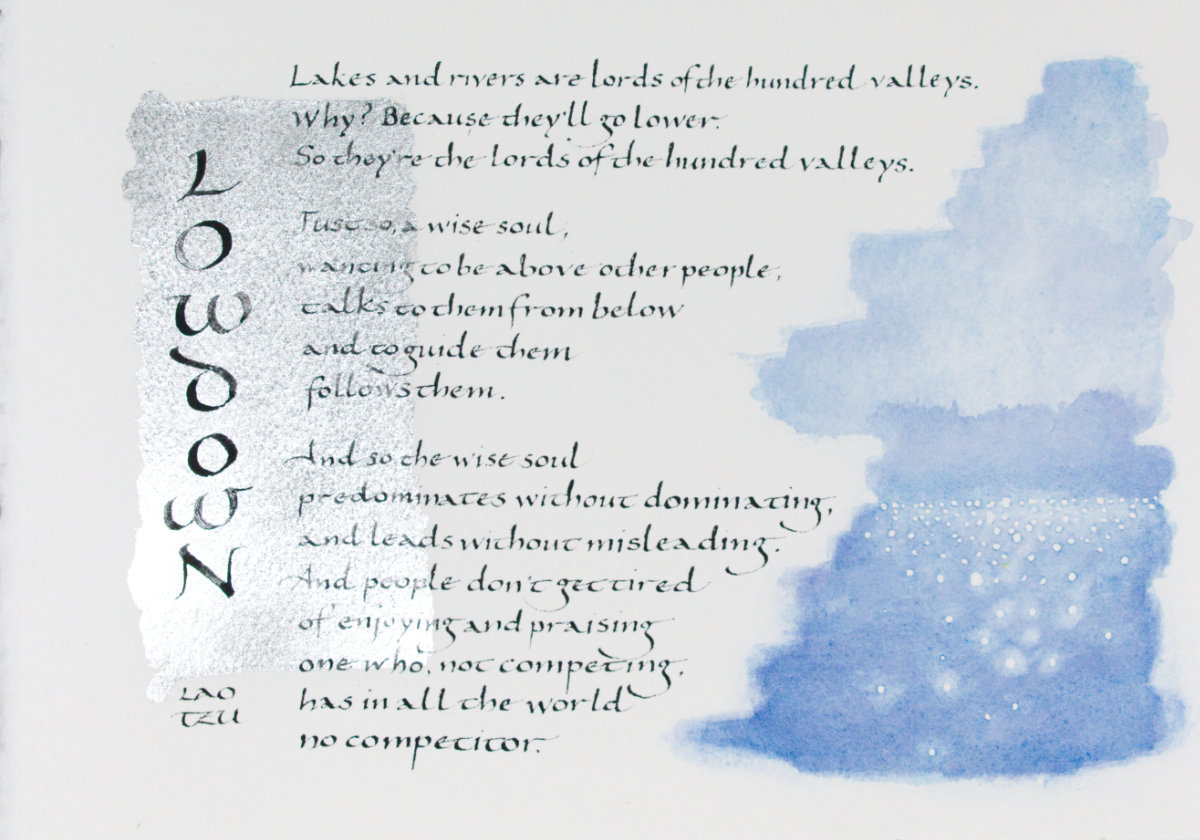 LOWDOWN
LAO
TZU
Lakes and rivers are lords of the hundred valleys.
Why? Because they'll go lower.
So they're the lords of the hundred valleys.
Just so, a wise soul,
wanting to be above other people,
talks to them from below
and to guide them
follows them.
And so the wise soul
predominates without dominating,
and leads without misleading.
And people don't get tired
of enjoying and praising
one who, not competing,
has in all the world
no competitor.